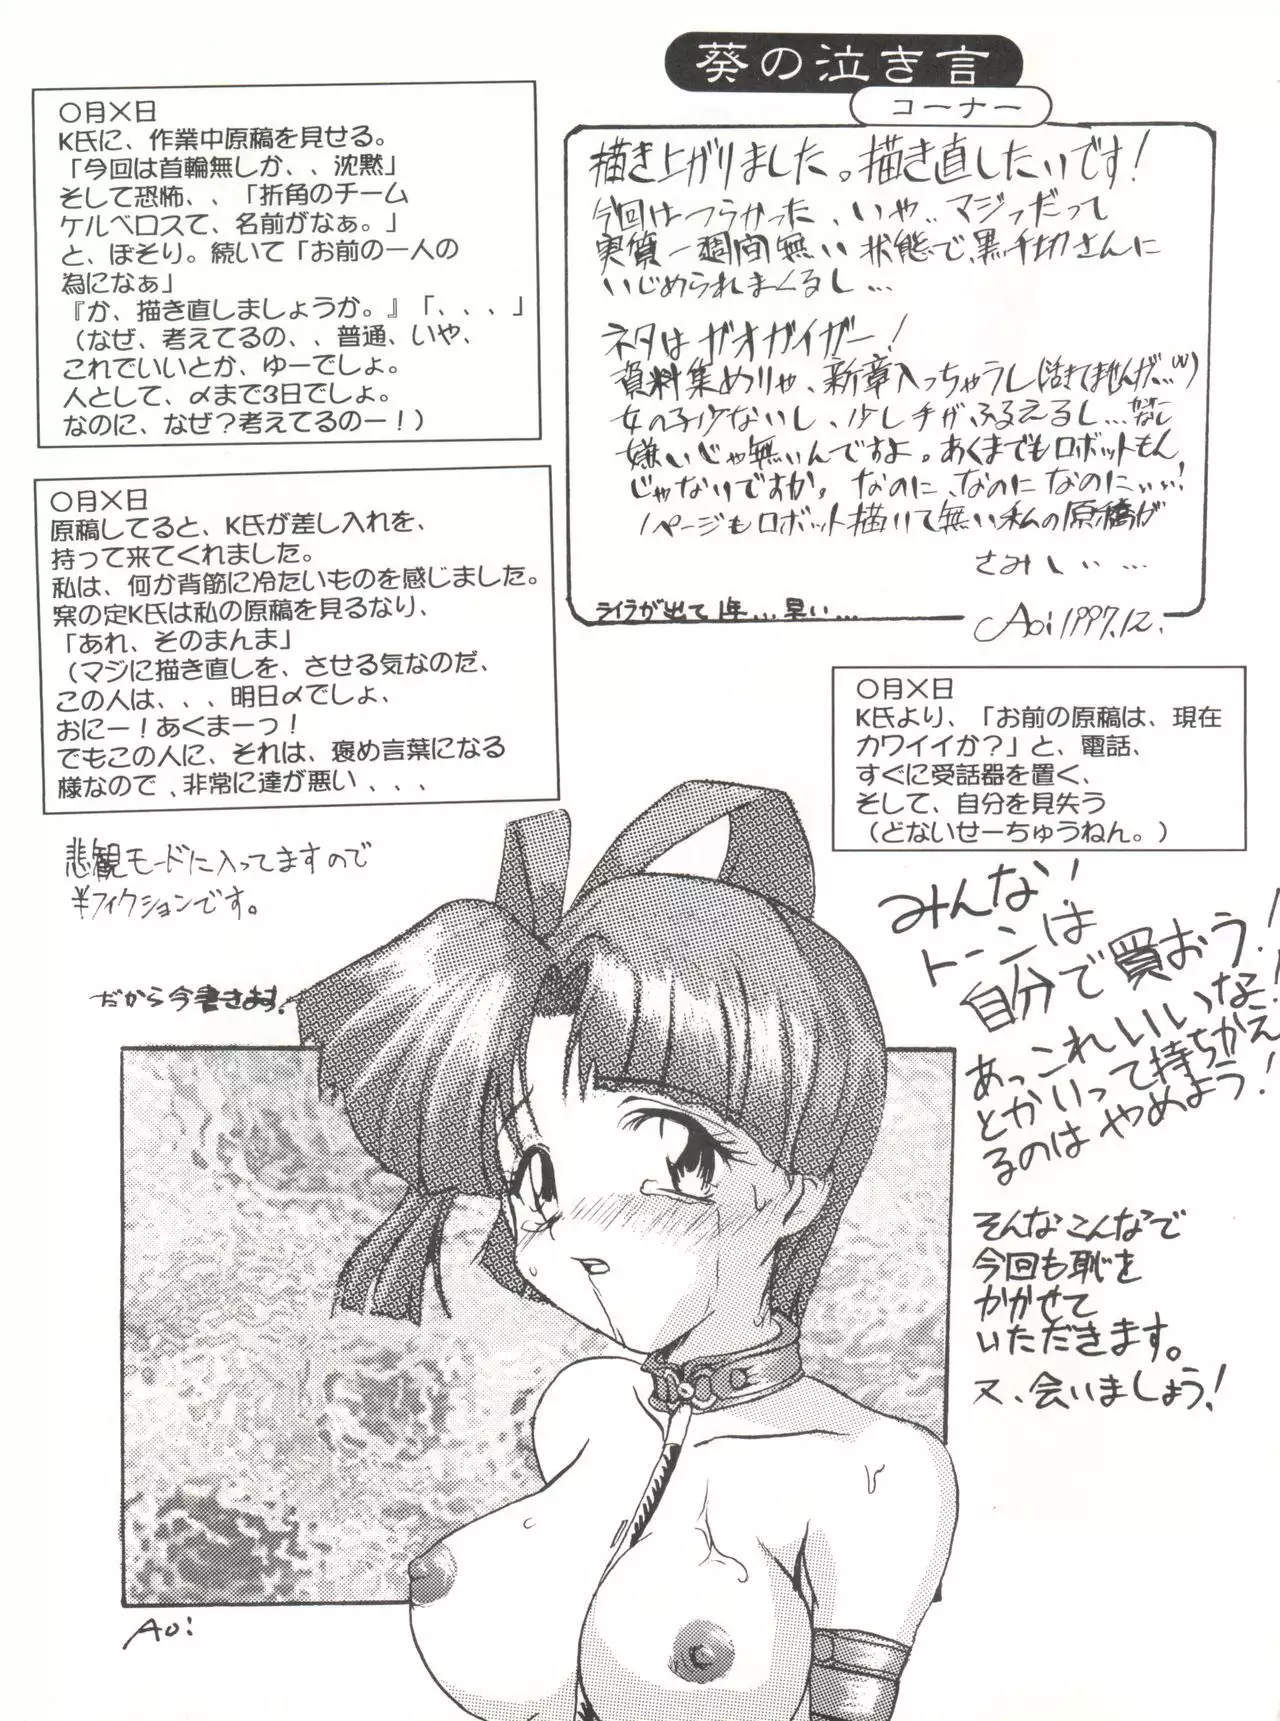 葵の泣き言
コーナー
〇月×日
K氏に、作業中原稿を見せる。
「今回は首輪無しか、、沈黙」
そして恐怖、、「折角のチーム
ケルベロスて、名前がなぁ。」
と、ぼそり。続いて「お前の一人の
為になぁ」
『か、描き直しましょうか。』「、、、」
（なぜ、考えてるの、、普通、いや、
これでいいとか、ゆーでしょ。
人として、〆まで3日でしょ。
なのに、なぜ？考えてるのー！）
描き上がりました。描き直したいです！
今回はつらかった、いや、、マジっだって
実質一週間無い状態で、黒千切さんに
いじめられまくるし…
ネタはガオガイガー！
資料集めりゃ、新章入っちゃうし（活きてませんけど…(w)）
女の子少ないし、少し手がふるえるし…
嫌いじゃ無いんですよ。あくまでもロボットもん
じゃないですか。なのに、なのに なのにぃぃ！
1ページもロボット描いて無い私の原稿が
さみしぃ…
ライラが出て1年…早い…
Aoi 1997.12.
〇月×日
原稿してると、K氏が差し入れを、
持って来てくれました。
私は、何か背筋に冷たいものを感じました。
案の定K氏は私の原稿を見るなり、
「あれ、そのまんま」
（マジに描き直しを、させる気なのだ、
この人は、、、明日〆でしょ、
おにー！あくまーっ！
でもこの人に、それは、褒め言葉になる
様なので、非常に達が悪い、、、
〇月×日
K氏より、「お前の原稿は、現在
カワイイか？」と、電話、
すぐに受話器を置く、
そして、自分を見失う
（どないせーちゅうねん。）
悲観モードに入ってますので
半フィクションです。
だから今書きます！
みんな！
トーンは
自分で買おう！
あっこれいいな！
とかいって持ちかえ
るのはやめよう！
そんなこんなで
今回も恥を
かかせて
いただきます。
又、会いましょう！
Aoi